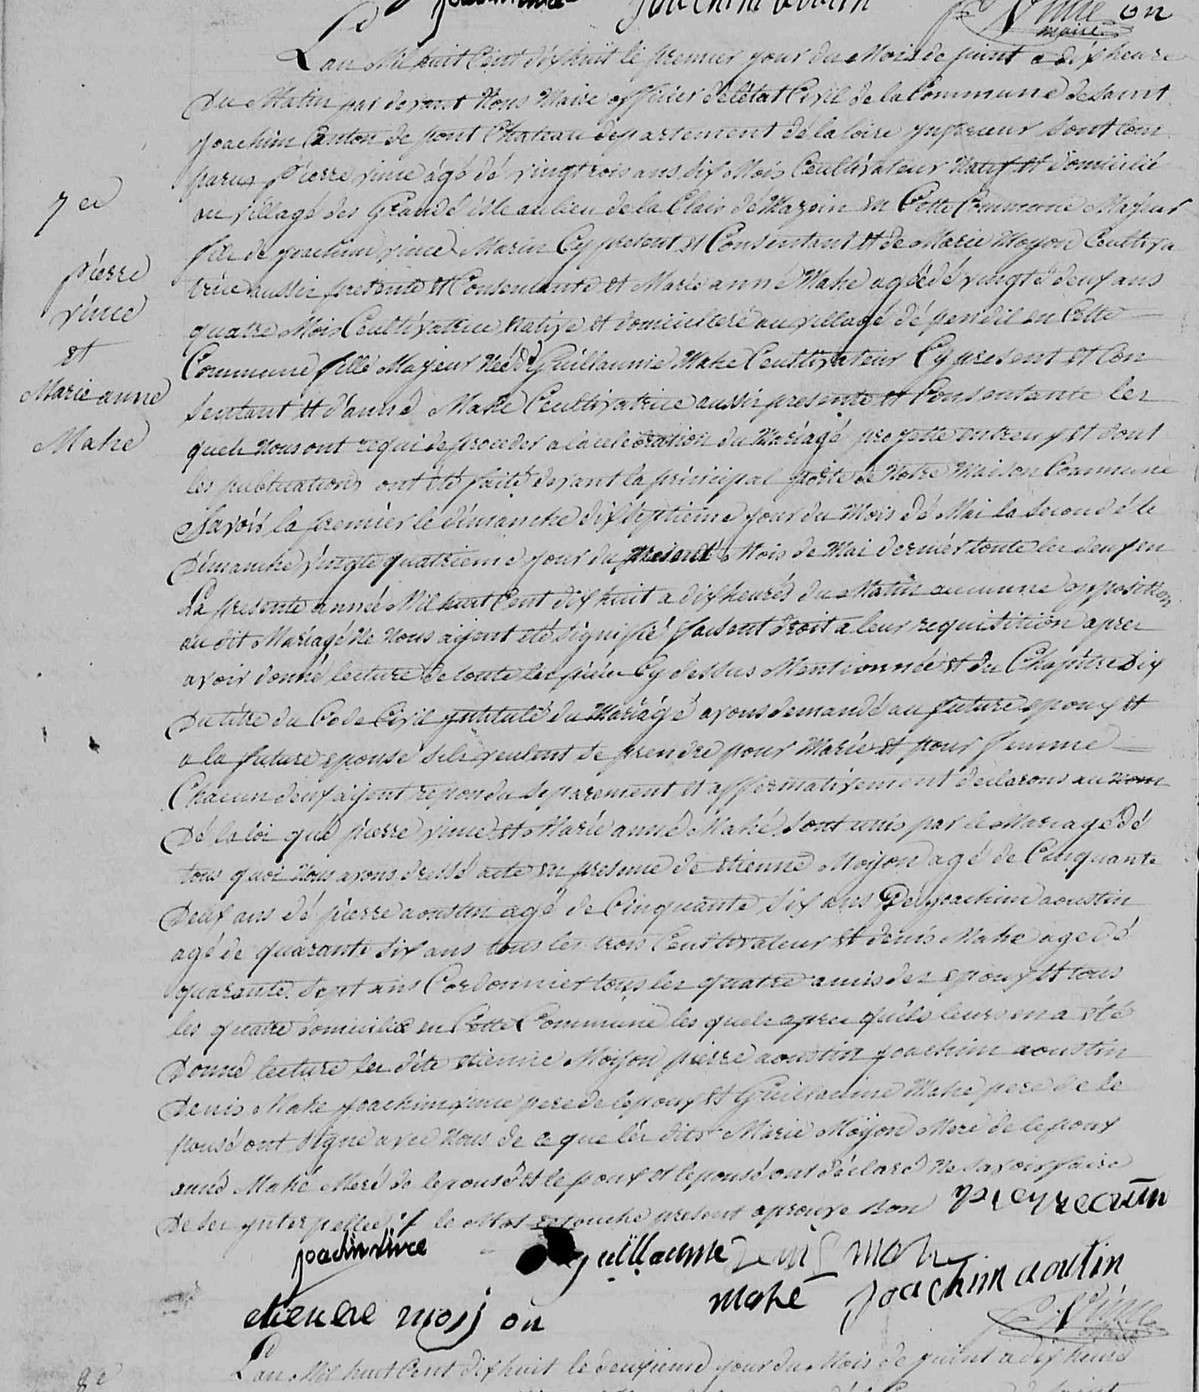 joachim vince joachim aoustin Vince on
maire
L'an Mil huit Cent dixhuit le premier jour du Mois de juint a dix heure
Du Matin par devant Nous Maire officier de l'état Civil de la Commune de Saint
joachim Canton de pont Chateau departement de la loire ynferieur sont Com
parus Pierre vince agé dé vingtrois ans six Mois Ceultivateur Natif et domicilié
au village des Grande isle au lieu de la Clair de Mazoin en Cette Commune Majeur
fils de joachim vince Marin Cy present et Consentant et de Marie Moyon Ceultiva
trice aussi presente et Consentante et Marie anne Mahé agée dé vingté deux ans
quatre Mois Ceultivatrice Native et domiciliere au village dé pendil en Cette
Commune fille Majeur Née de Guillaume Mahe Ceultivateur Cy present et Con
sentant et d'anne Mahé Ceultivatrice aussi presente et Consentante les
quels Nous ont requi de proceder a la celebration du Mariage projetté entreux et dont
les publications ont été faite devant la principal porte de Notre Maison Commune
Savoir la premier le dimanche dix septieme jour du Mois dé Mai la seconde le
Dimanche vingte quatrieme jour du present Mois de Mai dernier toute les deux en
La presente année Mil huit Cent dix huit a dix heures du Matin aucunne opposition
au dit Mariagé Ne Nous aijent été signifié faisent droit a leur requisition apres
avoir donné lecture de toute les piéces Cy dessus Mentionnée et du Chapitre Dix
Du titre du Code Civil yntitulé du Mariagé avons demandé au future epoux et
a la future epouse sils veulent se prendre pour Marie et pour femme
Chacun deux aijent repondu separement et affirmativement declarons au Nom
Dé la loi que pierre vince et Marie anne Mahé sont unis par le Mariage dé
tous quoi Nous avons dressé acte en presence de etienne Moijon agé de Cinquante
Deux ans dé pierre aoustin agé de Cinquante six ans De joachim aoustin
agé de quarante six ans tous les trois Ceultivateur et denis Mahé age dé
quarante sept ans Cordonnier tous les quatre amis des epoux et tous
les quatre domicilie en Cette Commune les quels apres quils leurs en a été
Donné lecture les dits etienne Moijon pierre aoustin joachim aoustin
Denis Mahe joachim vince pere de lepoux et Guillaume Mahe pere de le
pousé ont signé avec Nous de ce que les dits Marie Moijon Mere de lepoux
anné Mahé Meré de lepousé et lepoux et lepousé ont déclaré Ne savoir faire
De ces ynterpellés le Mot retouché present aprouve bon
7 ee
pierre
vince
et
Marie anne
Mahe
pieyre aoutin
joachim vince Guillaume denis mahe
mahe joachin aoutin
etienne moij on
Vince
L'an Mil huit Cent dix huit le deuxieme jour du Mois de juint a dix heure
8e